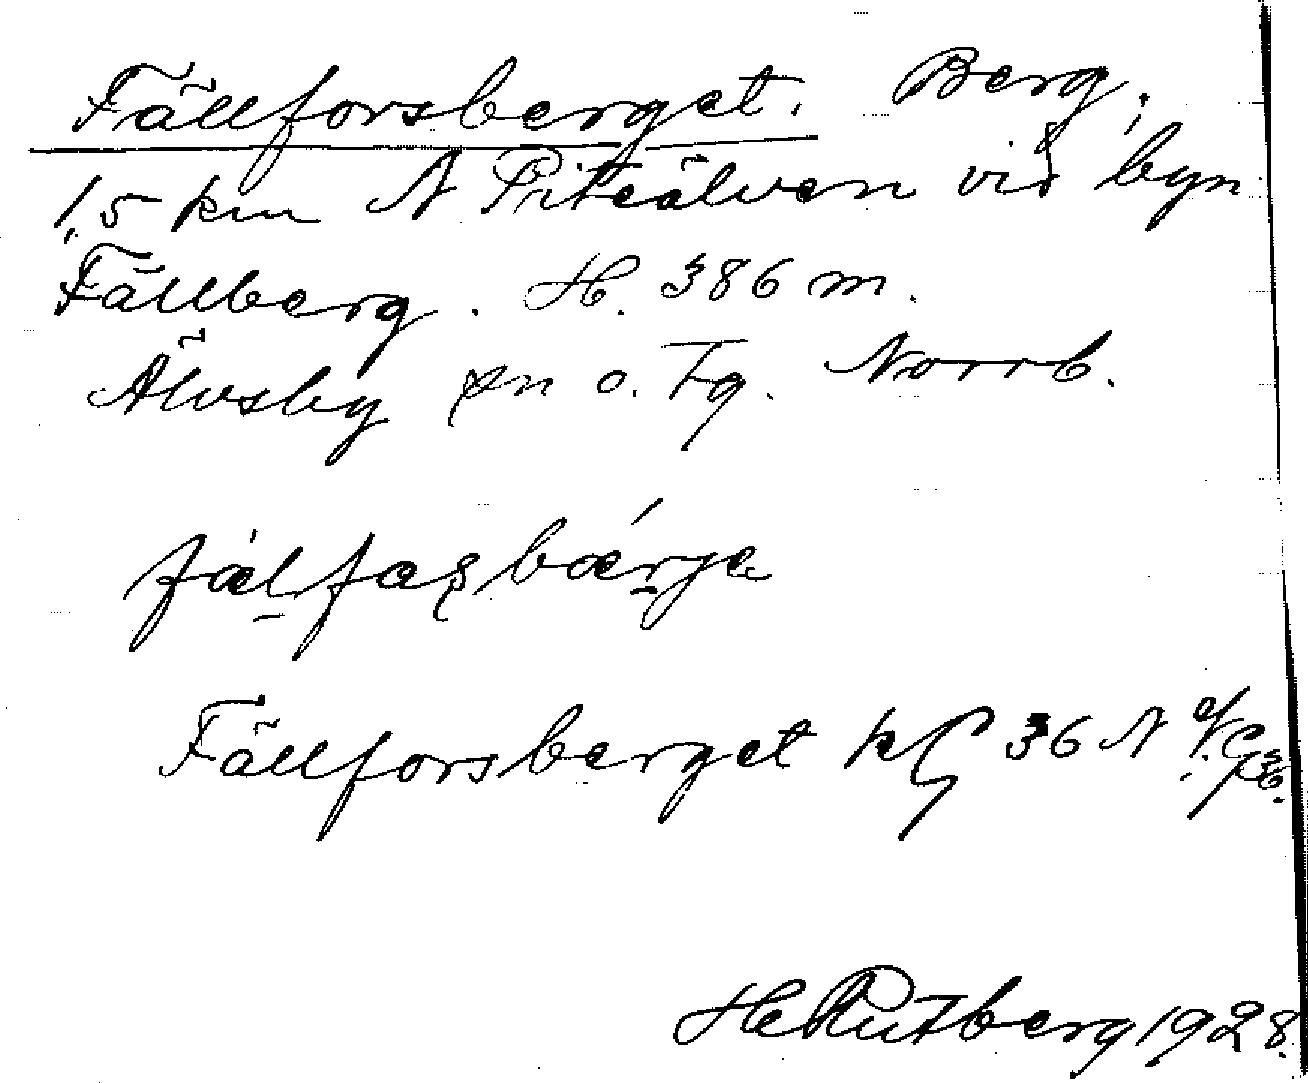 Fällforsberget. Berg,
1,5 km N Piteälven vid byn
Fällberg. H. 386 m.
Älvsby sn o. Tg. Norrb.
fälfaʂbǽrje
Fällforsberget kf 36 N
H Rutberg 1928.